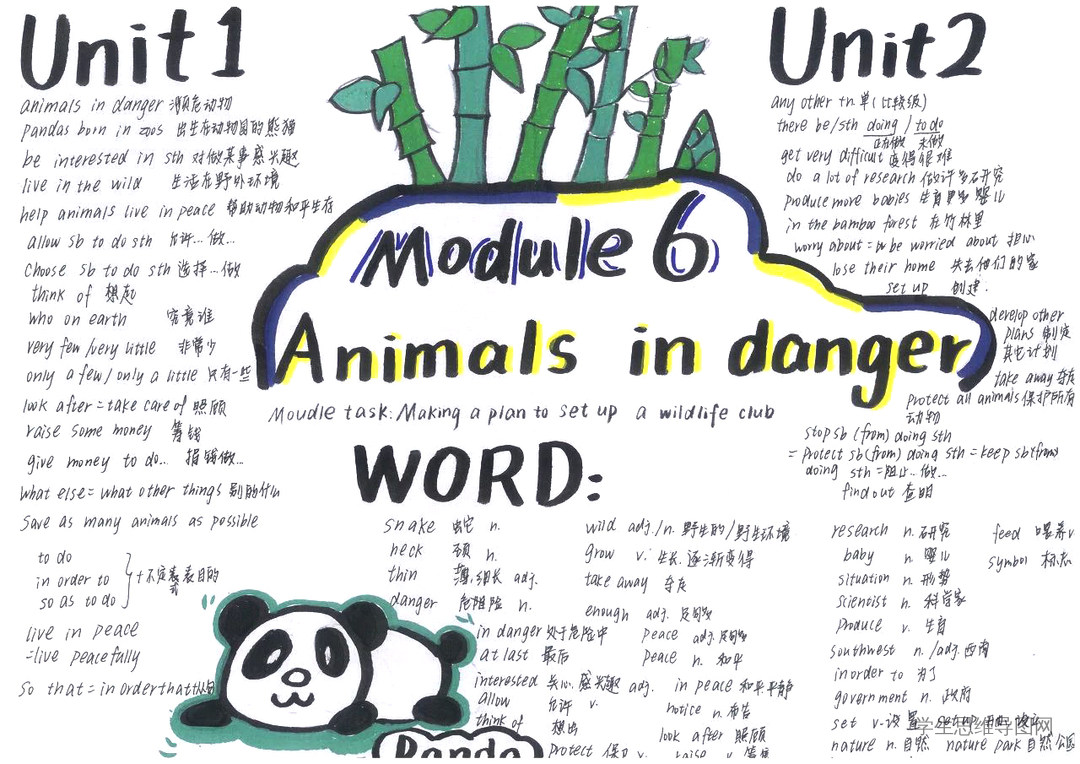 Unit 1
animals in danger 濒危动物
pandas born in zoos 出生在动物园的熊猫
be interested in sth 对做某事感兴趣
live in the wild 生活在野外环境
help animals live in peace 帮助动物和平生存
allow sb to do sth 允许...做...
choose sb to do sth 选择...做
think of 想起
who on earth 究竟谁
very few /very little 非常少
only a few/only a little 只有一些
look after=take care of 照顾
raise some money 筹钱
give money to do... 捐钱做...
what else=what other things 别的什么
save as many animals as possible
to do
in order to
so as to do
+不定式表目的
live in peace
=live peacefully
so that=in order that
Module 6
Animals in danger
Moudle task:Making a plan to set up a wildlife club
WORD:
snake 蛇 n.
neck 颈 n.
thin 薄,细长 adj.
danger 危险 n.
in danger 处于危险中
at last 最后
interested 关心,感兴趣 adj.
allow 允许 v.
think of 想出
protect 保护 v.
wild adj./n. 野生的/野生环境
grow v. 生长,逐渐变得
take away 夺去
enough adj. 足够
peace adj.足够
peace n. 和平
in peace 和平平静
notice n.布告
look after 照顾
raise v. 筹集
Panda
Unit 2
any other +n.单(比较级)
there be/sth doing / to do
正在做 未做
get very difficult 变得很难
do a lot of research 做许多研究
produce more babies 生育更多婴儿
in the bamboo forest 在竹林里
worry about = be worried about 担心
lose their home 失去他们的家
set up 创建
develop other
plans 制定
其它计划
take away 夺去
protect all animals 保护所有
动物
stop sb (from) doing sth
= protect sb(from) doing sth =keep sb(from)
doing sth =阻止...做...
find out 查明
research n.研究
baby n. 婴儿
situation n. 形势
scientist n. 科学家
produce v. 生育
southwest n./adj.西南
in order to 为了
government n. 政府
set v.设置
set up
nature n.自然 nature park自然公园
feed 喂养v.
symbol 标志
学生思维导图网